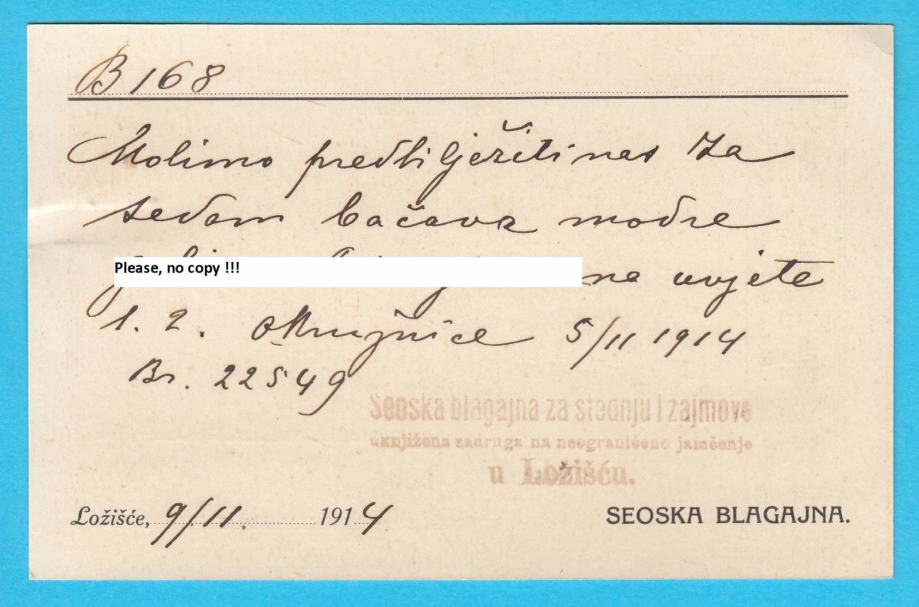 B 168
Molimo predbilježiti nas za
sedam bačava modre
Please, no copy !!!
na uvjete
1. 2. okružnice 5/11 1914
Br. 22549
Seoska blagajna za štednju i zajmove
uknjižena zadruga na neograničeno jamčenje
u Ložišću.
Ložišće, 9/11. 1914
SEOSKA BLAGAJNA.